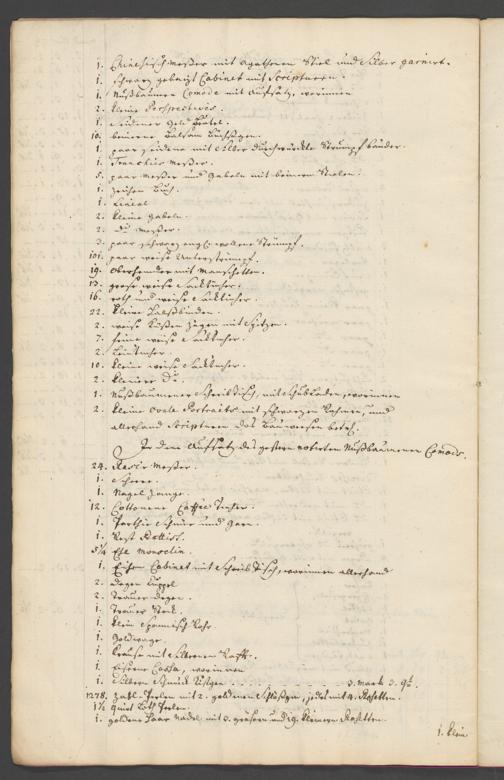 1. Chinesisch Meßer mit Agathenen Stiel und Silber garnirt.
1. schwarz gebaizt Cabinet mit Scripturen.
1. Nußbaumene Comode mit Aufsatz, worinnen
2. kleine Perspectives.
1. seidener Geld Beutel.
10. beinerne Balsam Büchsgen.
1. paar seidene mit Silber durchwürckte Strumpfbänder.
1. Tranchir Meßer.
5. paar Meßer und Gabeln mit beinern Stielen.
1. zeichen Buch.
1. Lineal
2. kleine Gabeln.
2. do Meßer.
3. paar schwarz wollene Strümpf.
101. paar weise Unterstrümpf.
19. Oberhemder mit Manschetten.
13. grose weise Sacktücher.
16. roth und weise Sacktücher.
22. kleine Halßbinden.
2. weise Küßen Zügen mit Spitzen.
7. feine weise Sacktücher.
2. Leintücher.
10. kleine weise Sacktücher.
2. kleinere do.
1. Nußbaumener Schreibtisch, mit Schubladen, worinnen
2. kleine Ovale Portraits mit schwarzen Rahmen, und
allerhand Scripturen das Bauwesen betref.
In dem Aufsatz des gestern notirten Nußbaumenen Comods.
24. Rasir Meßer.
1. Scheere.
1. Nagel Zange.
12. Cottonene Caffée Tücher.
1. Parthie Schnür und Garn.
1. Rest
5¼ Ehle
1. Cabinet mit Schreib Tisch, worinnen allerhand
2. Degen Kuppel
2. Trauer Degen.
1. Trauer Stock.
1. klein Spannisch Rohr
1. Goldwage.
1. mit Silbernen
1. Eiserne Cassa, worinnen
1. Silbern Schmuck Kästgen . . . . . . . . 3. Mark 3. qt.
1278. Zahl-Perlen mit 2. goldenen Schlößgen, jedes mit 4. Rosetten.
1½ quint Loth Perlen.
1. goldene Haar Nadel mit 3. grösern und 19. kleinern Rosetten.
1. klein